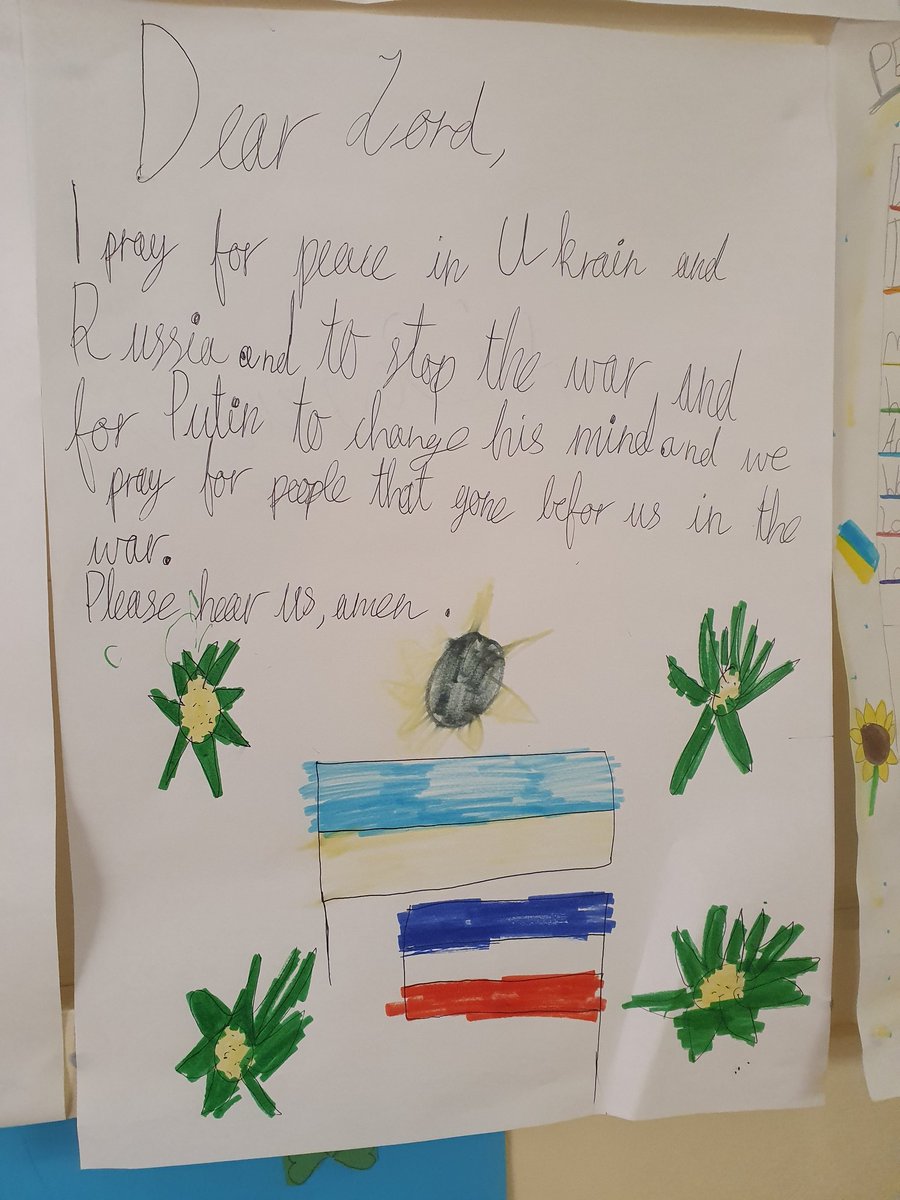 Dear Lord,
I pray for peace in Ukrain and
Russia and to stop the war and
for Putin to change his mind and we
pray for people that gone befor us in the
war.
Please hear us, amen.